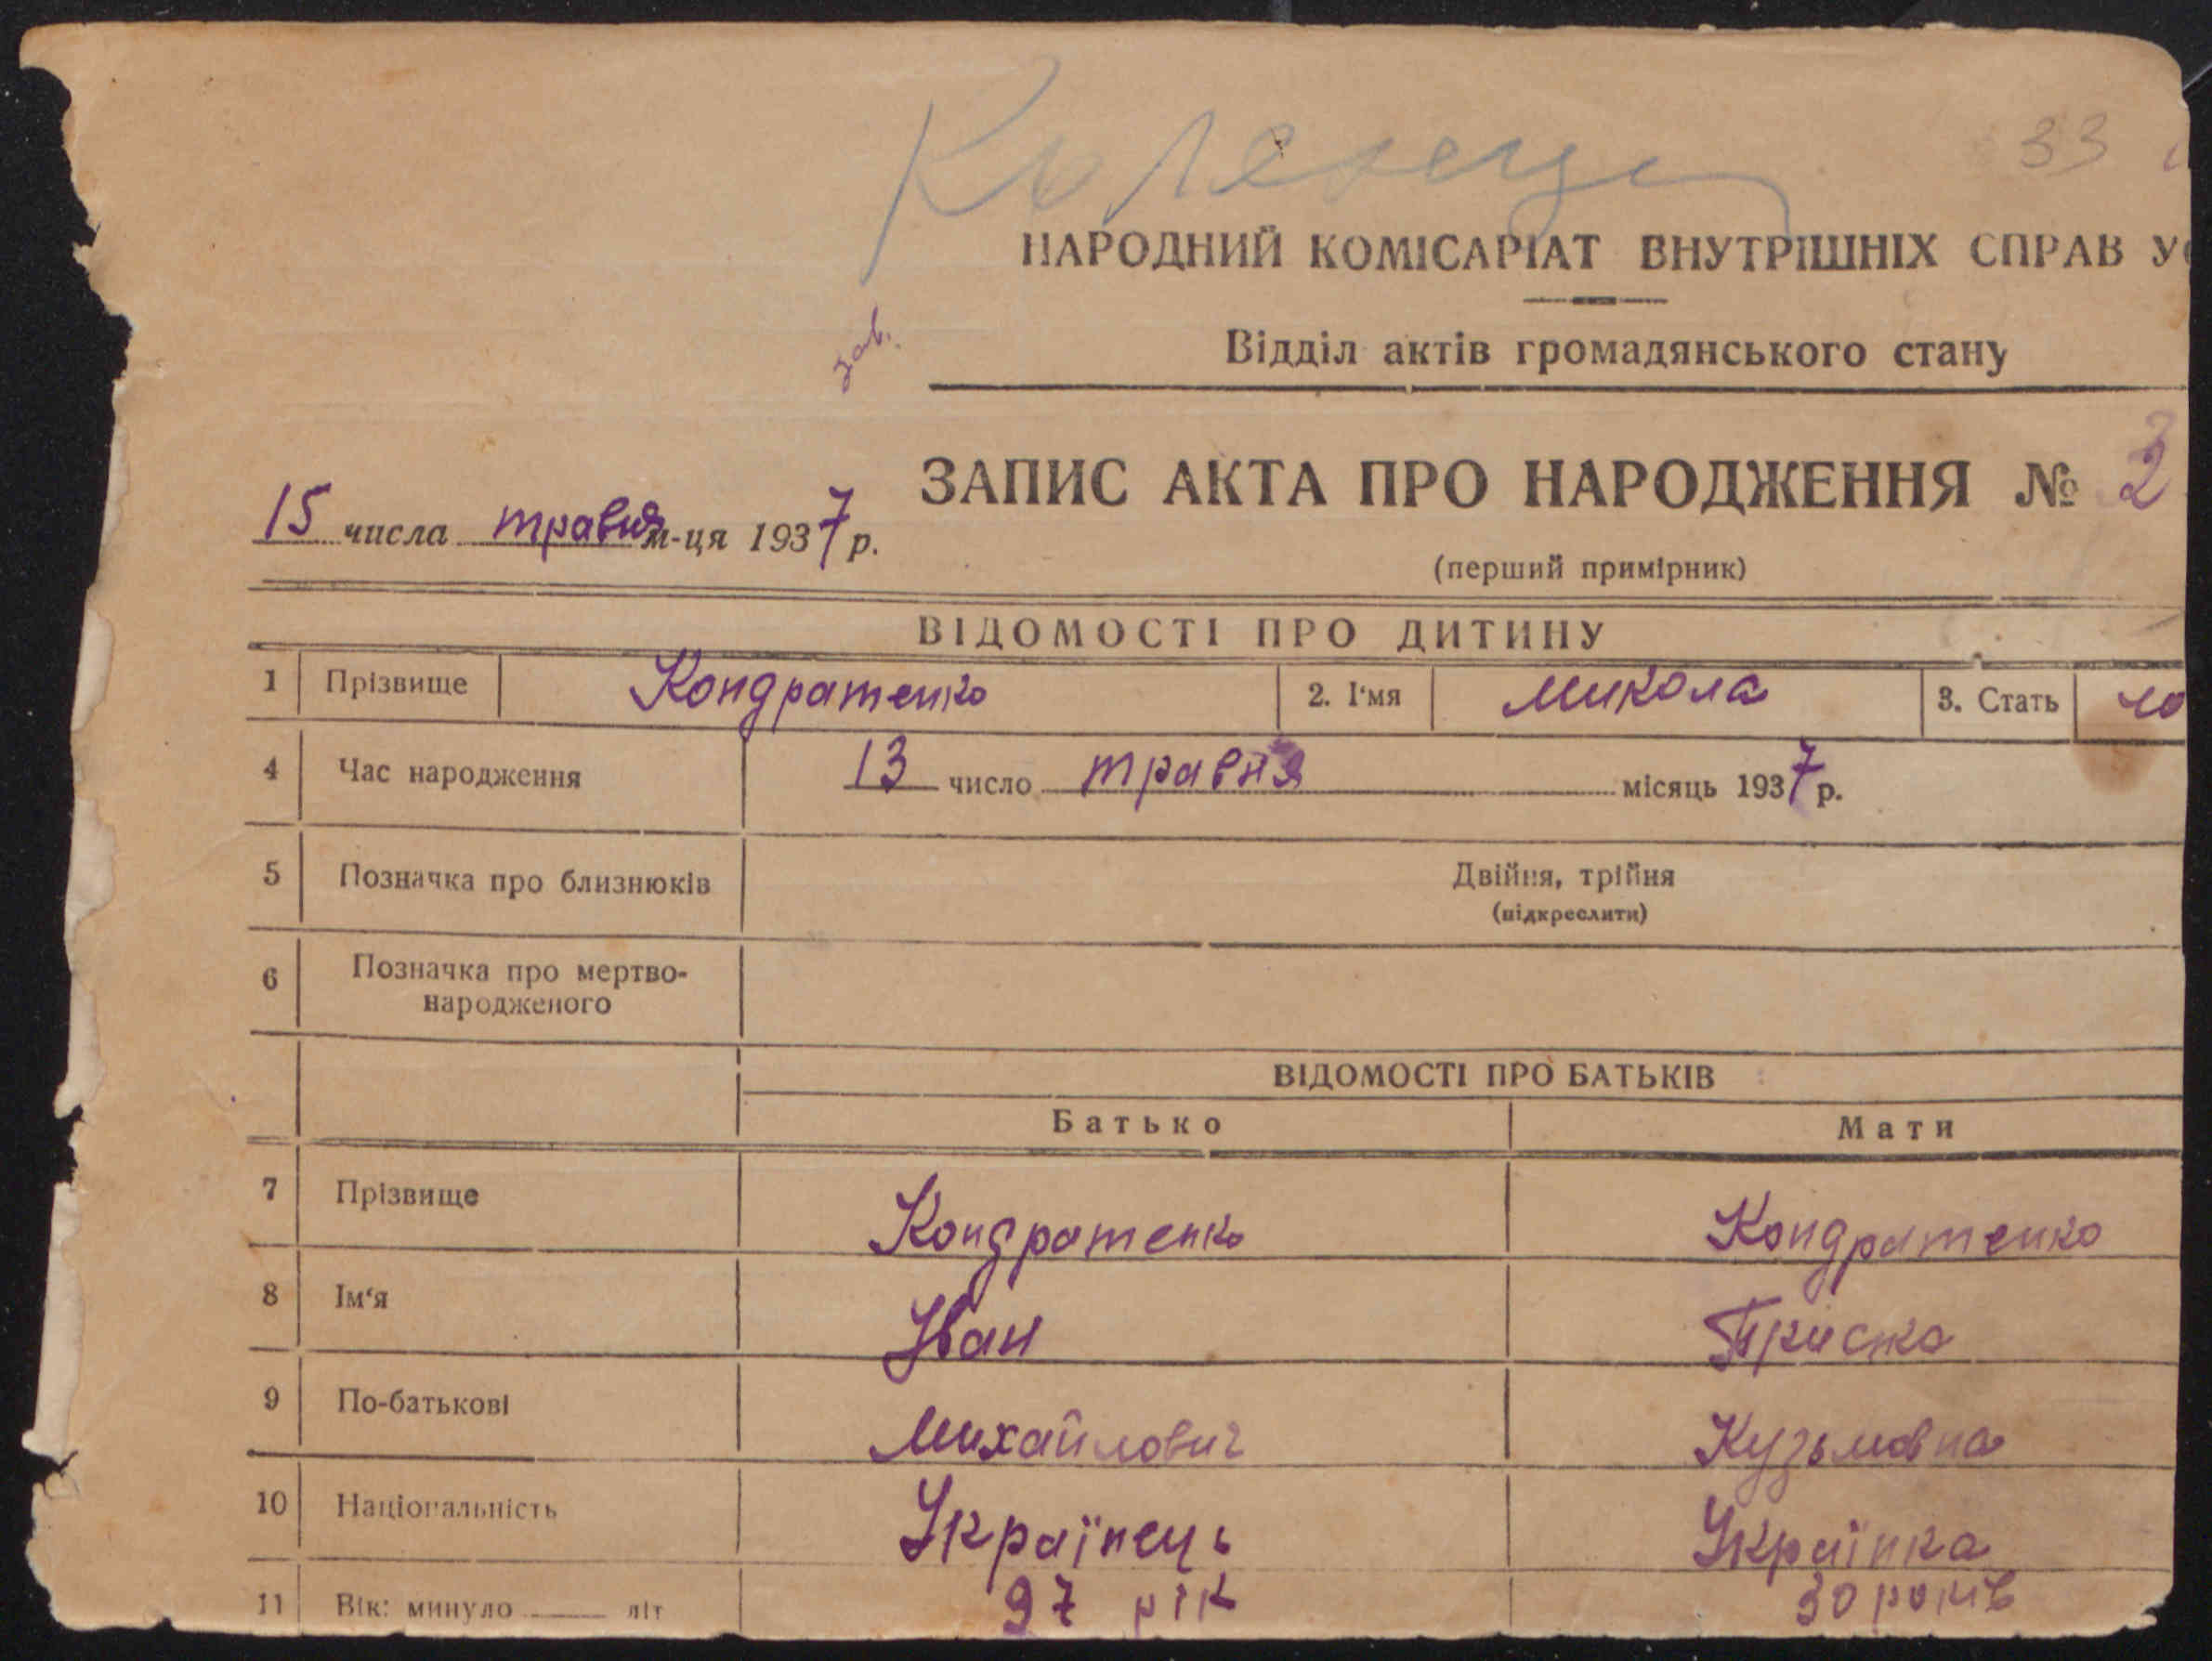 33
НАРОДНИЙ КОМІСАРІАТ ВНУТРІШНІХ СПРАВ У
Відділ актів громадянського стану
зав.
ЗАПИС АКТА ПРО НАРОДЖЕННЯ № 2
15 числа травня м-ця 1937 р.
(перший примірник)
ВІДОМОСТІ ПРО ДИТИНУ
1 Прізвище Кондратенко 2. І'мя Микола 3. Стать чо
4 Час народження 13 число травня місяць 1937 р.
5 Позначка про близнюків Двійня, трійня
(підкреслити)
6 Позначка про мертво-
народженого
ВІДОМОСТІ ПРО БАТЬКІВ
Батько Мати
7 Прізвище Кондратенко Кондратенко
8 Ім'я Іван Приська
9 По-батькові Михайлович Кузьмовна
10 Національність Українець Українка
11 Вік: минуло літ рік 30 років